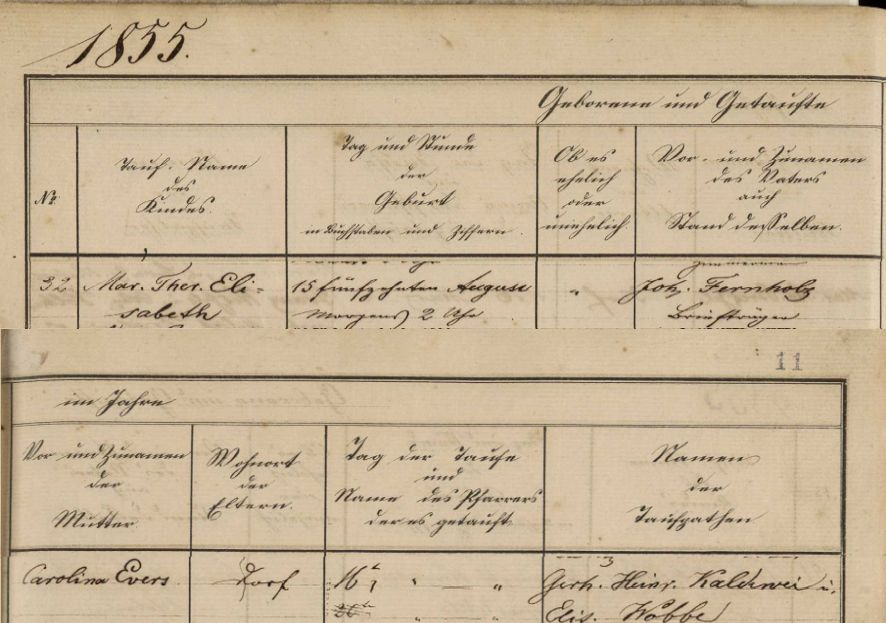 1855.
Geborene und Getaufte
No
Tauf-Name
des
Kindes.
Tag und Stunde
der
Geburt
in Buchstaben und Ziffern.
Ob es
ehelich
oder
unehelich.
Vor- und Zunamen
des Vaters
auch
Stand desselben.
32
Mar. Ther. Eli-
sabeth
15 fünfzehnten August
Morgens 2 Uhr
"
Joh. Fernholz
Briefträger
11
im Jahre
Vor und Zunamen
der
Mutter.
Wohnort
der
Eltern.
Tag der Taufe
und
Name des Pfarrers
der es getauft
Namen
der
Taufpathen
Carolina Evers.
Dorf
16t " — "
Gerh. Heinr. Kaldewei u.
Elis. Wobbe